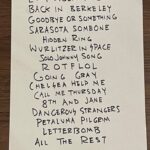 BACK IN BERKELEY
GOODBYE OR SOMETHING
SARASOTA SOMEONE
HIDDEN RING
WURLITZER IN SPACE
SOLO JOHNNY SONG
ROTFLOL
GOING GRAY
CHELSEA HELP ME
CALL ME THURSDAY
8TH AND JANE
DANGEROUS STRANGERS
PETALUMA PILGRIM
LETTERBOMB
ALL THE REST